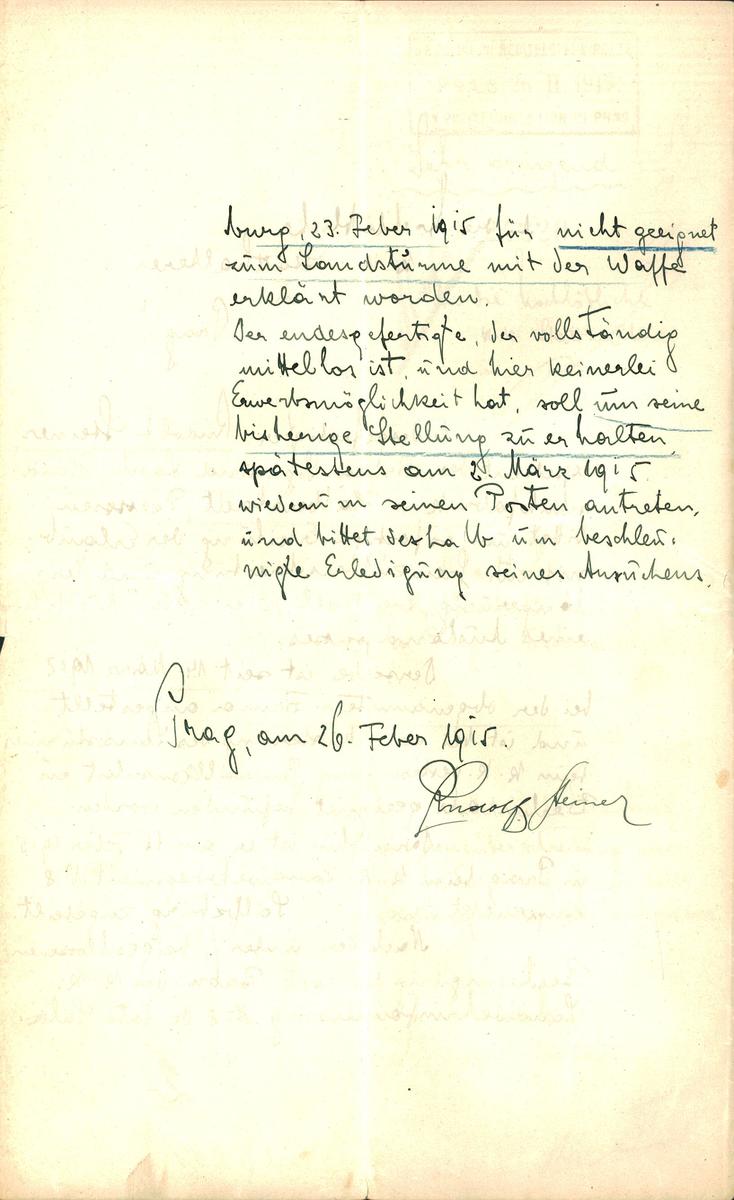 burg, 23. Feber 1915 für nicht geeignet
zum Landsturme mit der Waffe
erklärt worden.
Der endesgefertigte, der vollständig
mittellos ist, und hier keinerlei
Erwerbsmöglichkeit hat, soll um seine
bisherige Stellung zu erhalten,
spätestens am 2. März 1915
wiederum seinen Posten antreten,
und bittet deshalb um beschleu-
nigte Erledigung seines Ansuchens.
Prag, am 26. Feber 1915.
Rudolf Steiner